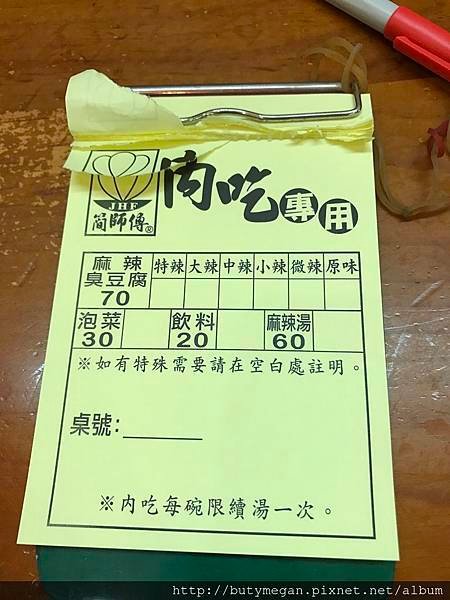 JHF
簡師傅®
內吃專用
麻辣 特辣 大辣 中辣 小辣 微辣 原味
臭豆腐
70
泡菜 飲料 麻辣湯
30 20 60
※如有特殊需要請在空白處註明。
桌號:______
※內吃每碗限續湯一次。
http://butymegan.pixnet.net/album